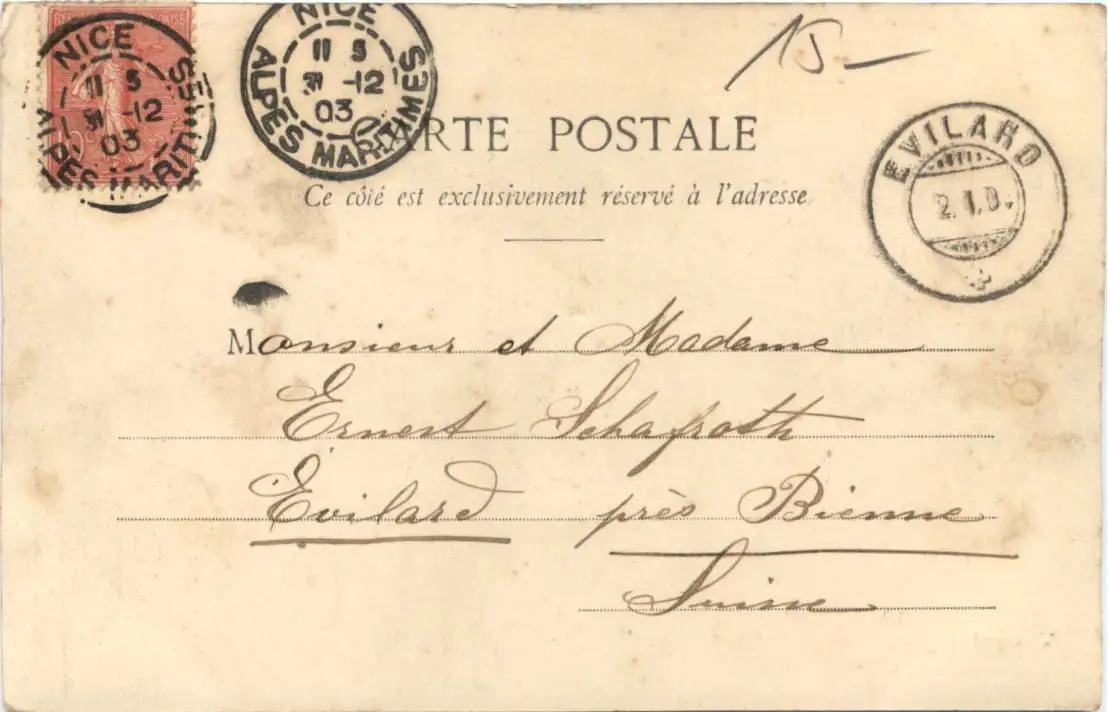 RÉPUBLIQUE FRANÇAISE
10c
NICE
11 5
31 -12
03
ALPES MARITIMES
NICE
11 5
31 -12
03
ALPES MARITIMES
15 —
CARTE POSTALE
Ce côté est exclusivement réservé à l'adresse
EVILARD
2.I.0
Monsieur et Madame
Ernest Schafroth
Evilard près Bienne
Suisse